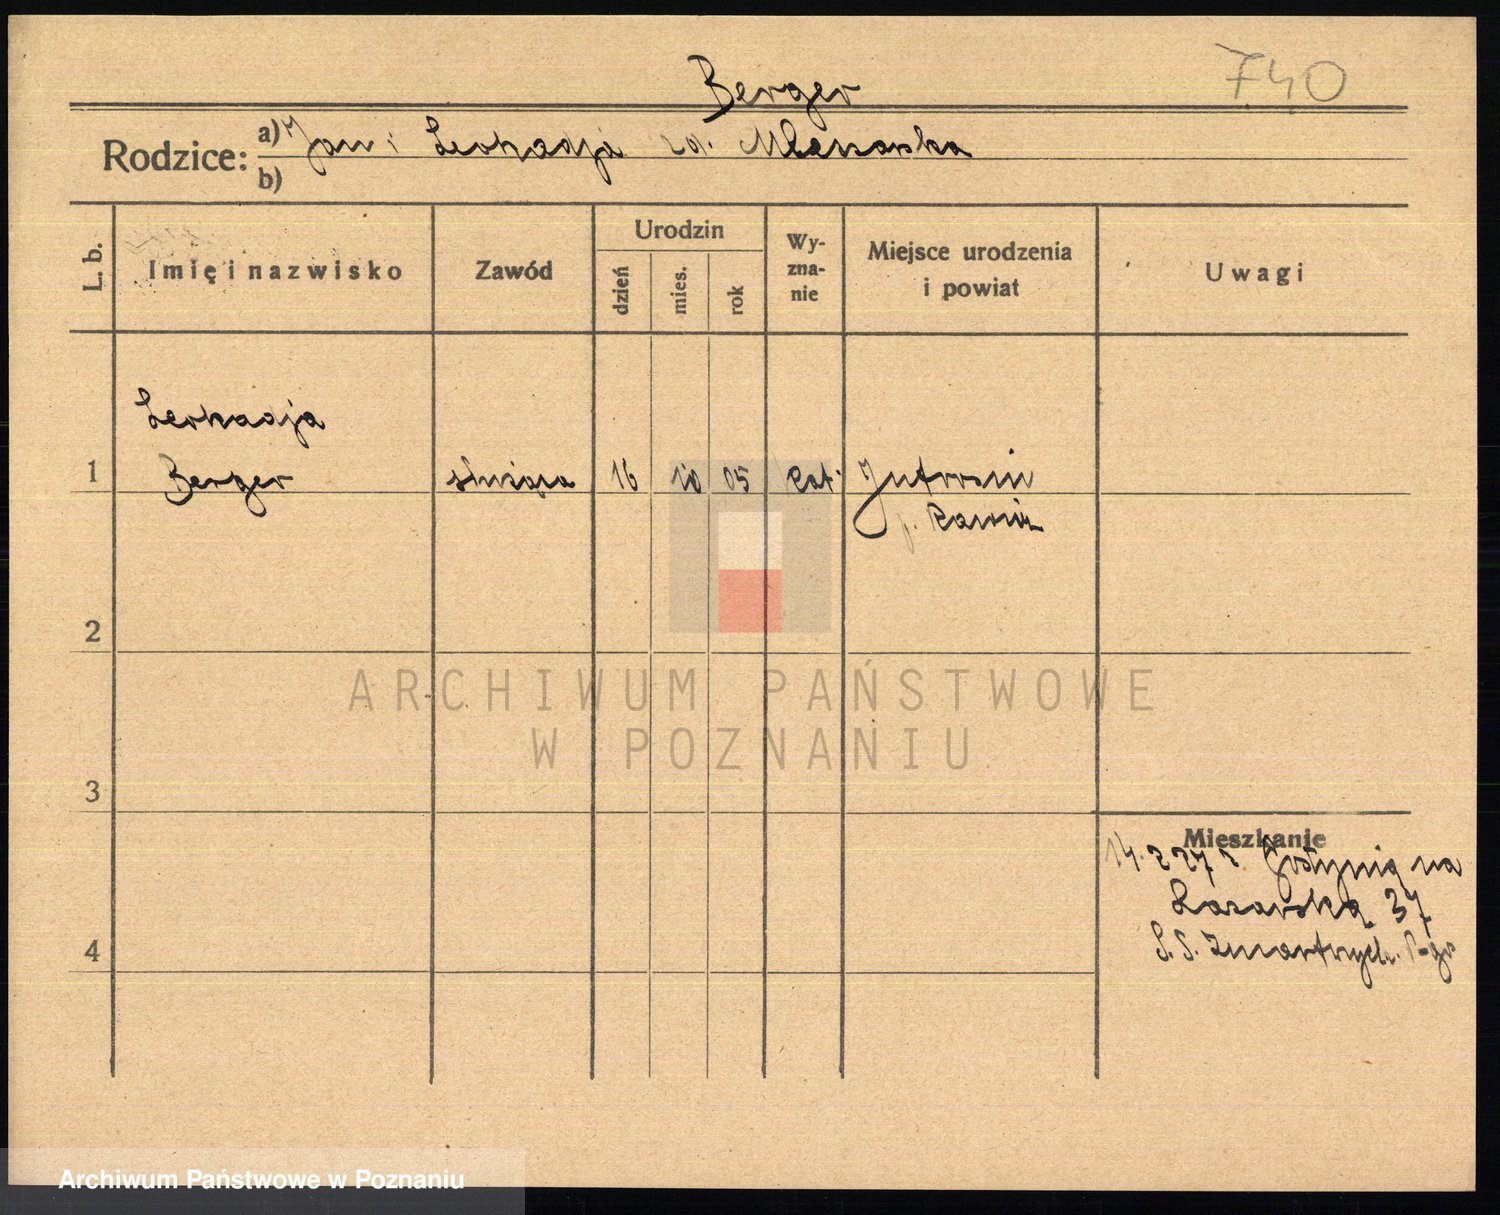 Berger
740
Rodzice: a) Jan i Leokadja zd.
b)
L. b.
Imię i nazwisko
Zawód
Urodzin
dzień
mies.
rok
Wy-
zna-
nie
Miejsce urodzenia
i powiat
Uwagi
Leokadja
1 Berger służąca 16 10 05 kat. Jutrosin
p. Rawicz
2
3
4
Mieszkanie
14.2 27 z Gostynia na
37
S.S. Zmartwych.
ARCHIWUM PAŃSTWOWE
W POZNANIU
Archiwum Państwowe w Poznaniu